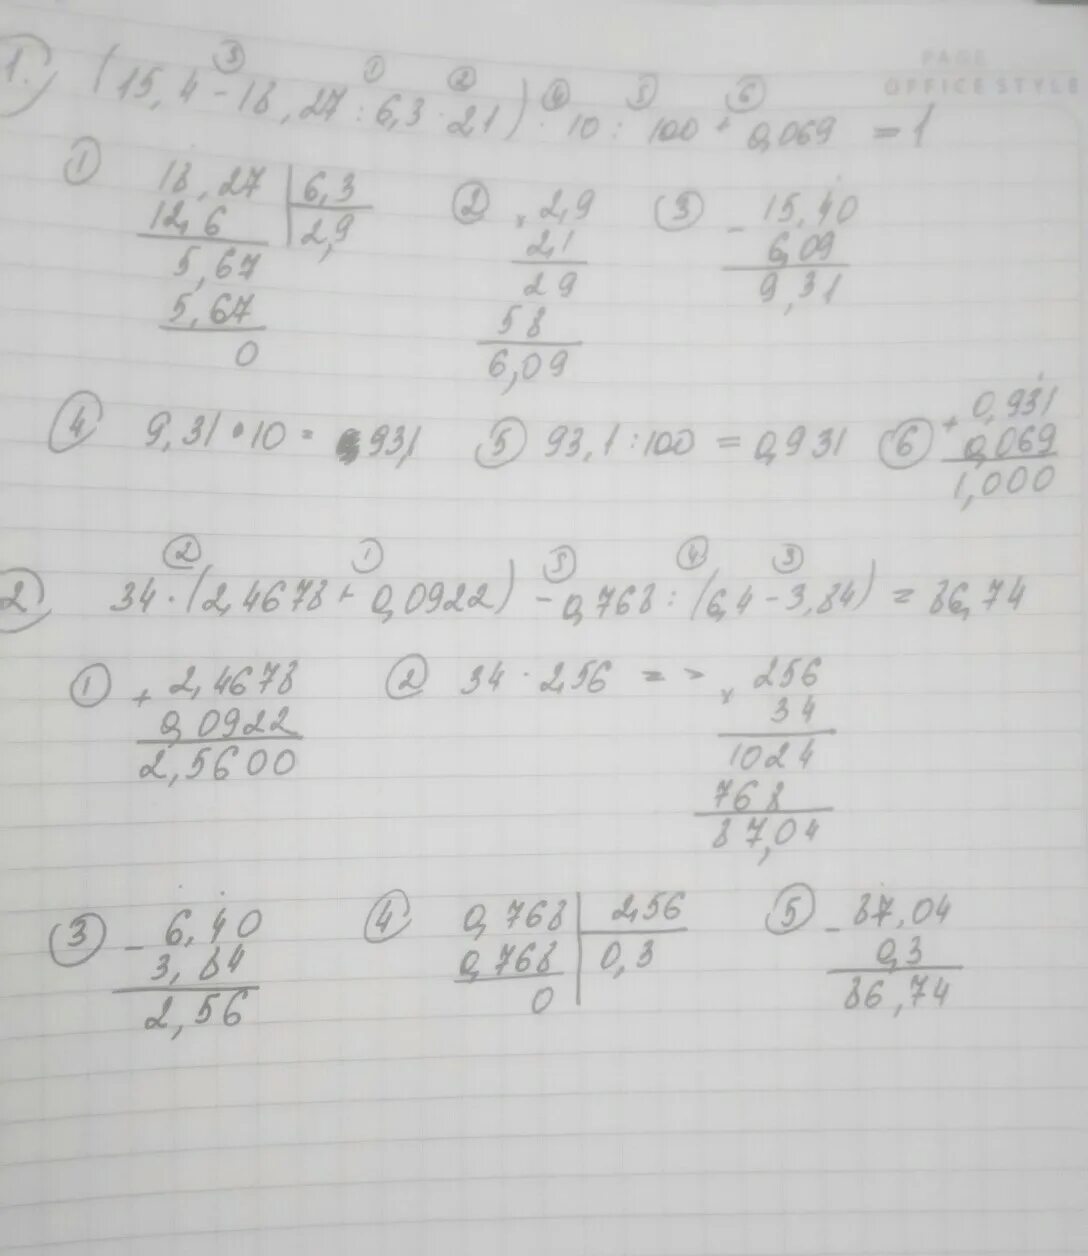 PAGE
OFFICE STYLE
1. (15,4 - 18,27 : 6,3 · 2,1) · 10 : 100 + 0,069 = 1
③ ① ② ④ ⑤ ⑥
① 18,27 | 6,3
12,6 | 2,9
5,67
5,67
0
② × 2,9
2,1
29
58
6,09
③ - 15,40
6,09
9,31
④ 9,31 · 10 = 93,1
⑤ 93,1 : 100 = 0,931
⑥ + 0,931
0,069
1,000
2) 34 · (2,4678 + 0,0922) - 0,768 : (6,4 - 3,84) = 86,74
② ① ⑤ ④ ③
① + 2,4678
0,0922
2,5600
② 34 · 2,56 = > × 256
34
1024
768
87,04
③ - 6,40
3,84
2,56
④ 0,768 | 2,56
0,768 | 0,3
0
⑤ - 87,04
0,3
86,74